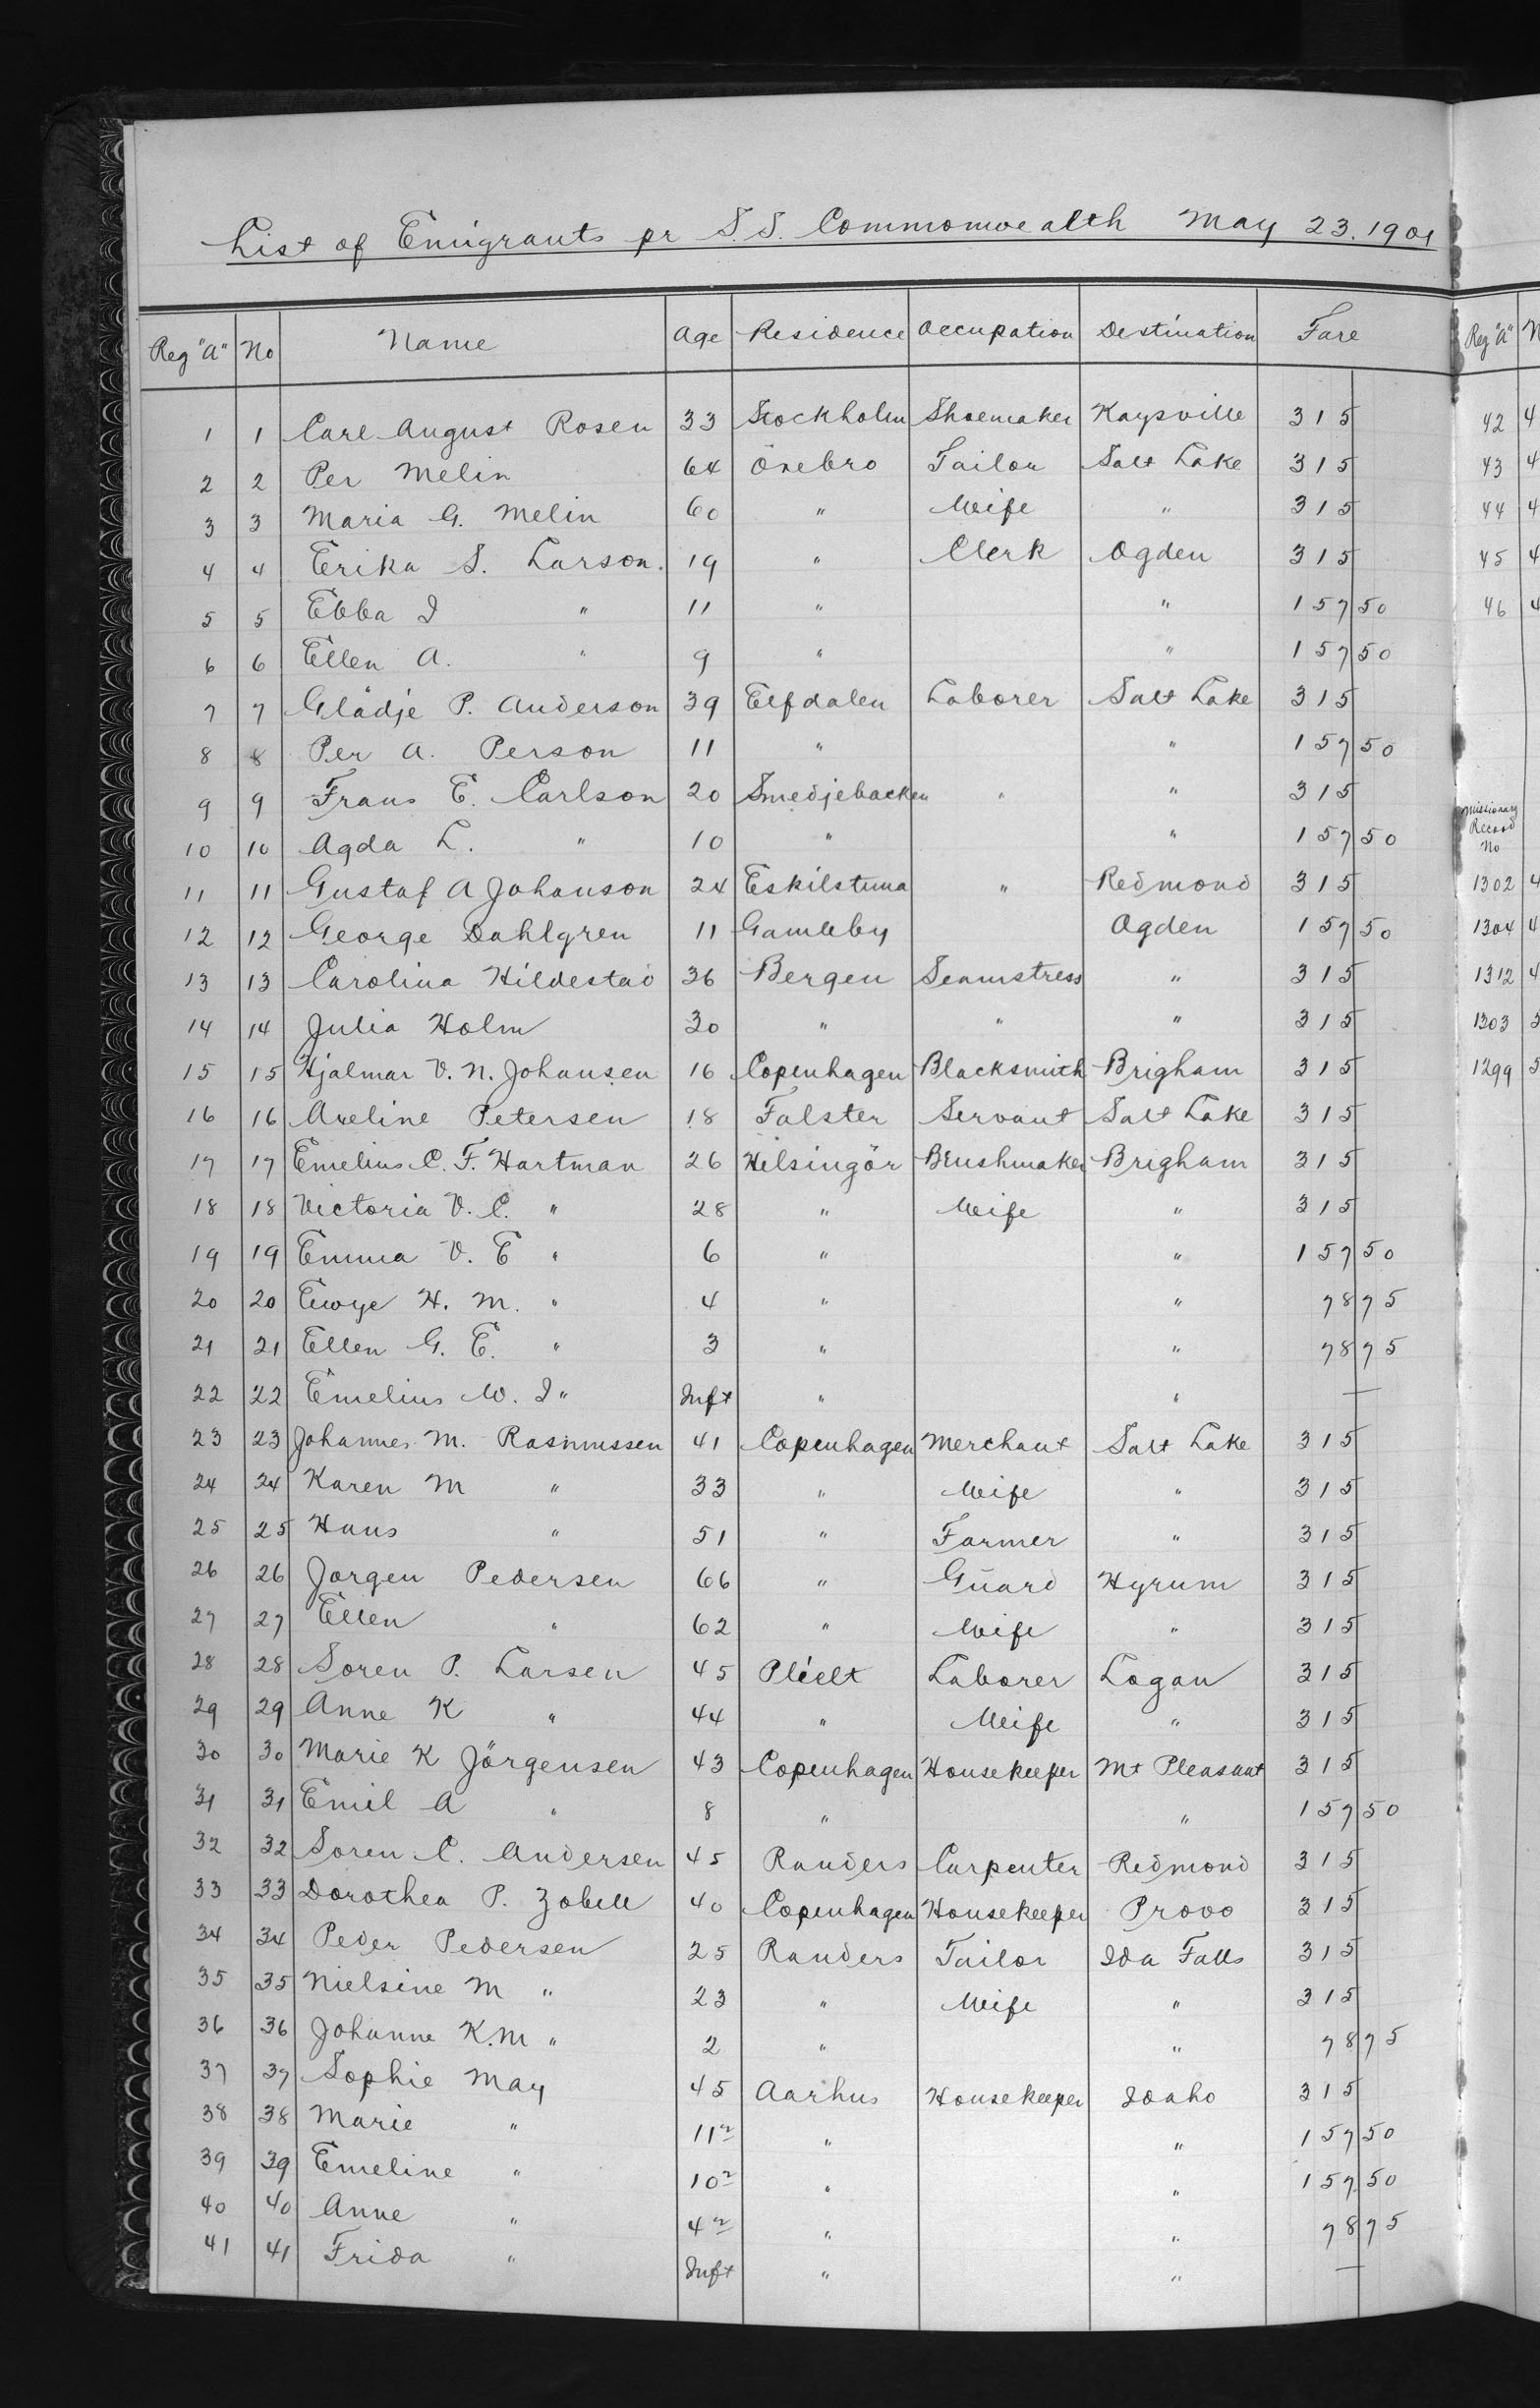 List of Emigrants pr S.S. Commonwealth May 23. 1901
Reg "A" No Name Age Residence Occupation Destination Fare
1 1 Carl August Rosen 33 Stockholm Shoemaker Kaysville 315
2 2 Per Melin 64 Örebro Tailor Salt Lake 315
3 3 Maria G. Melin 60 " Wife " 315
4 4 Erika S. Larson. 19 " Clerk Ogden 315
5 5 Ebba I " 11 " " 157 50
6 6 Ellen A. " 9 " " 157 50
7 7 Glädje P. Anderson 39 Elfdalen Laborer Salt Lake 315
8 8 Per A. Person 11 " " 157 50
9 9 Frans E. Carlson 20 Smedjebacken " " 315
10 10 Agda L. " 10 " " 157 50
11 11 Gustaf A Johanson 24 Eskilstuna " Redmond 315
12 12 George Dahlgren 11 Gamleby Ogden 157 50
13 13 Carolina Hildestad 36 Bergen Seamstress " 315
14 14 Julia Holm 30 " " " 315
15 15 Hjalmar V. N. Johansen 16 Copenhagen Blacksmith Brigham 315
16 16 Areline Petersen 18 Falster Servant Salt Lake 315
17 17 Emelius C. F. Hartman 26 Helsingör Brushmaker Brigham 315
18 18 Victoria V. C. " 28 " Wife " 315
19 19 Emma V. E " 6 " " 157 50
20 20 H. M. " 4 " " 78 75
21 21 Ellen G. E. " 3 " " 78 75
22 22 Emelius W. I " Inft " " —
23 23 Johannes M. Rasmussen 41 Copenhagen Merchant Salt Lake 315
24 24 Karen M " 33 " Wife " 315
25 25 Hans " 51 " Farmer " 315
26 26 Jorgen Pedersen 66 " Guard Hyrum 315
27 27 Ellen " 62 " Wife " 315
28 28 Soren P. Larsen 45 Laborer Logan 315
29 29 Anne K " 44 " Wife " 315
30 30 Marie K Jörgensen 43 Copenhagen Housekeeper Mt Pleasant 315
31 31 Emil A " 8 " " 157 50
32 32 Soren C. Andersen 45 Randers Carpenter Redmond 315
33 33 Dorothea P. Zobell 40 Copenhagen Housekeeper Provo 315
34 34 Peder Pedersen 25 Randers Tailor Ida Falls 315
35 35 Nielsine M " 23 " Wife " 315
36 36 Johanne K. M " 2 " " 78 75
37 37 Sophie May 45 Aarhus Housekeeper Idaho 315
38 38 Marie " 11 " " 157 50
39 39 Emeline " 10 " " 157 50
40 40 Anne " 4 " " 78 75
41 41 Frida " Inft " " —
Reg "A" N
42 4
43 4
44 4
45 4
46 4
Missionary
Record
No
1302 4
1304 4
1312 4
1303 5
1299 5